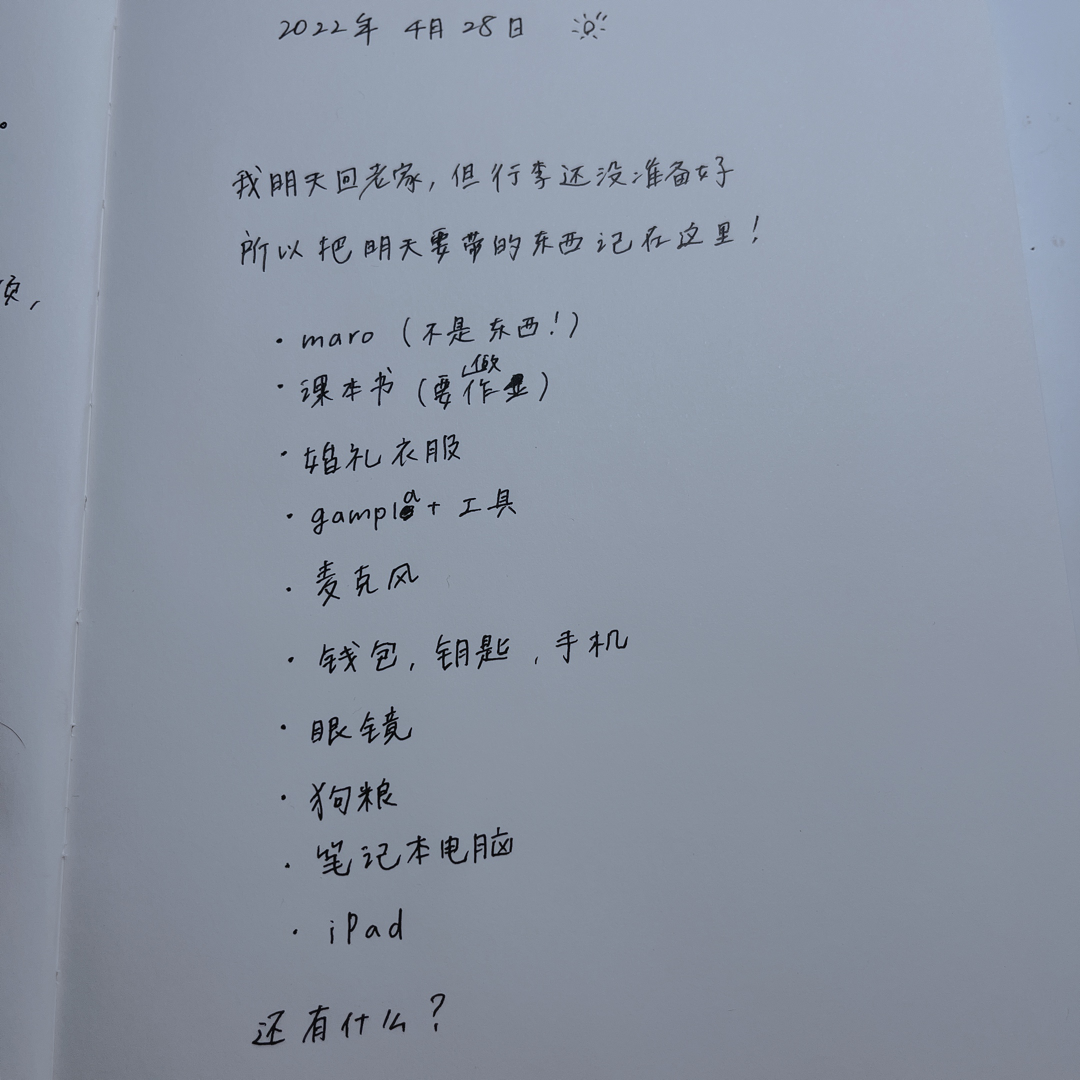 2022年 4月 28日
我明天回老家,但行李还没准备好
所以把明天要带的东西记在这里!
· maro (不是东西!)
· 课本书 (要做作业)
· 婚礼衣服
· gampla + 工具
· 麦克风
· 钱包, 钥匙, 手机
· 眼镜
· 狗粮
· 笔记本电脑
· iPad
还有什么?